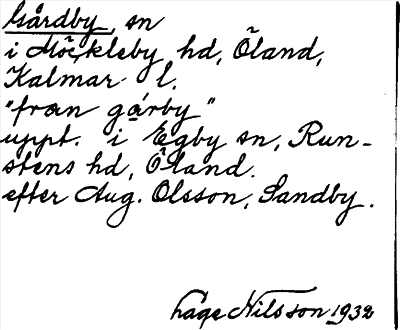 Gårdby, sn
i Möckleby hd, Öland,
Kalmar l.
"fran gårby"
uppt. i Egby sn, Run-
stens hd, Öland.
efter Aug. Olsson, Sandby.
Håge Nilsson 1932